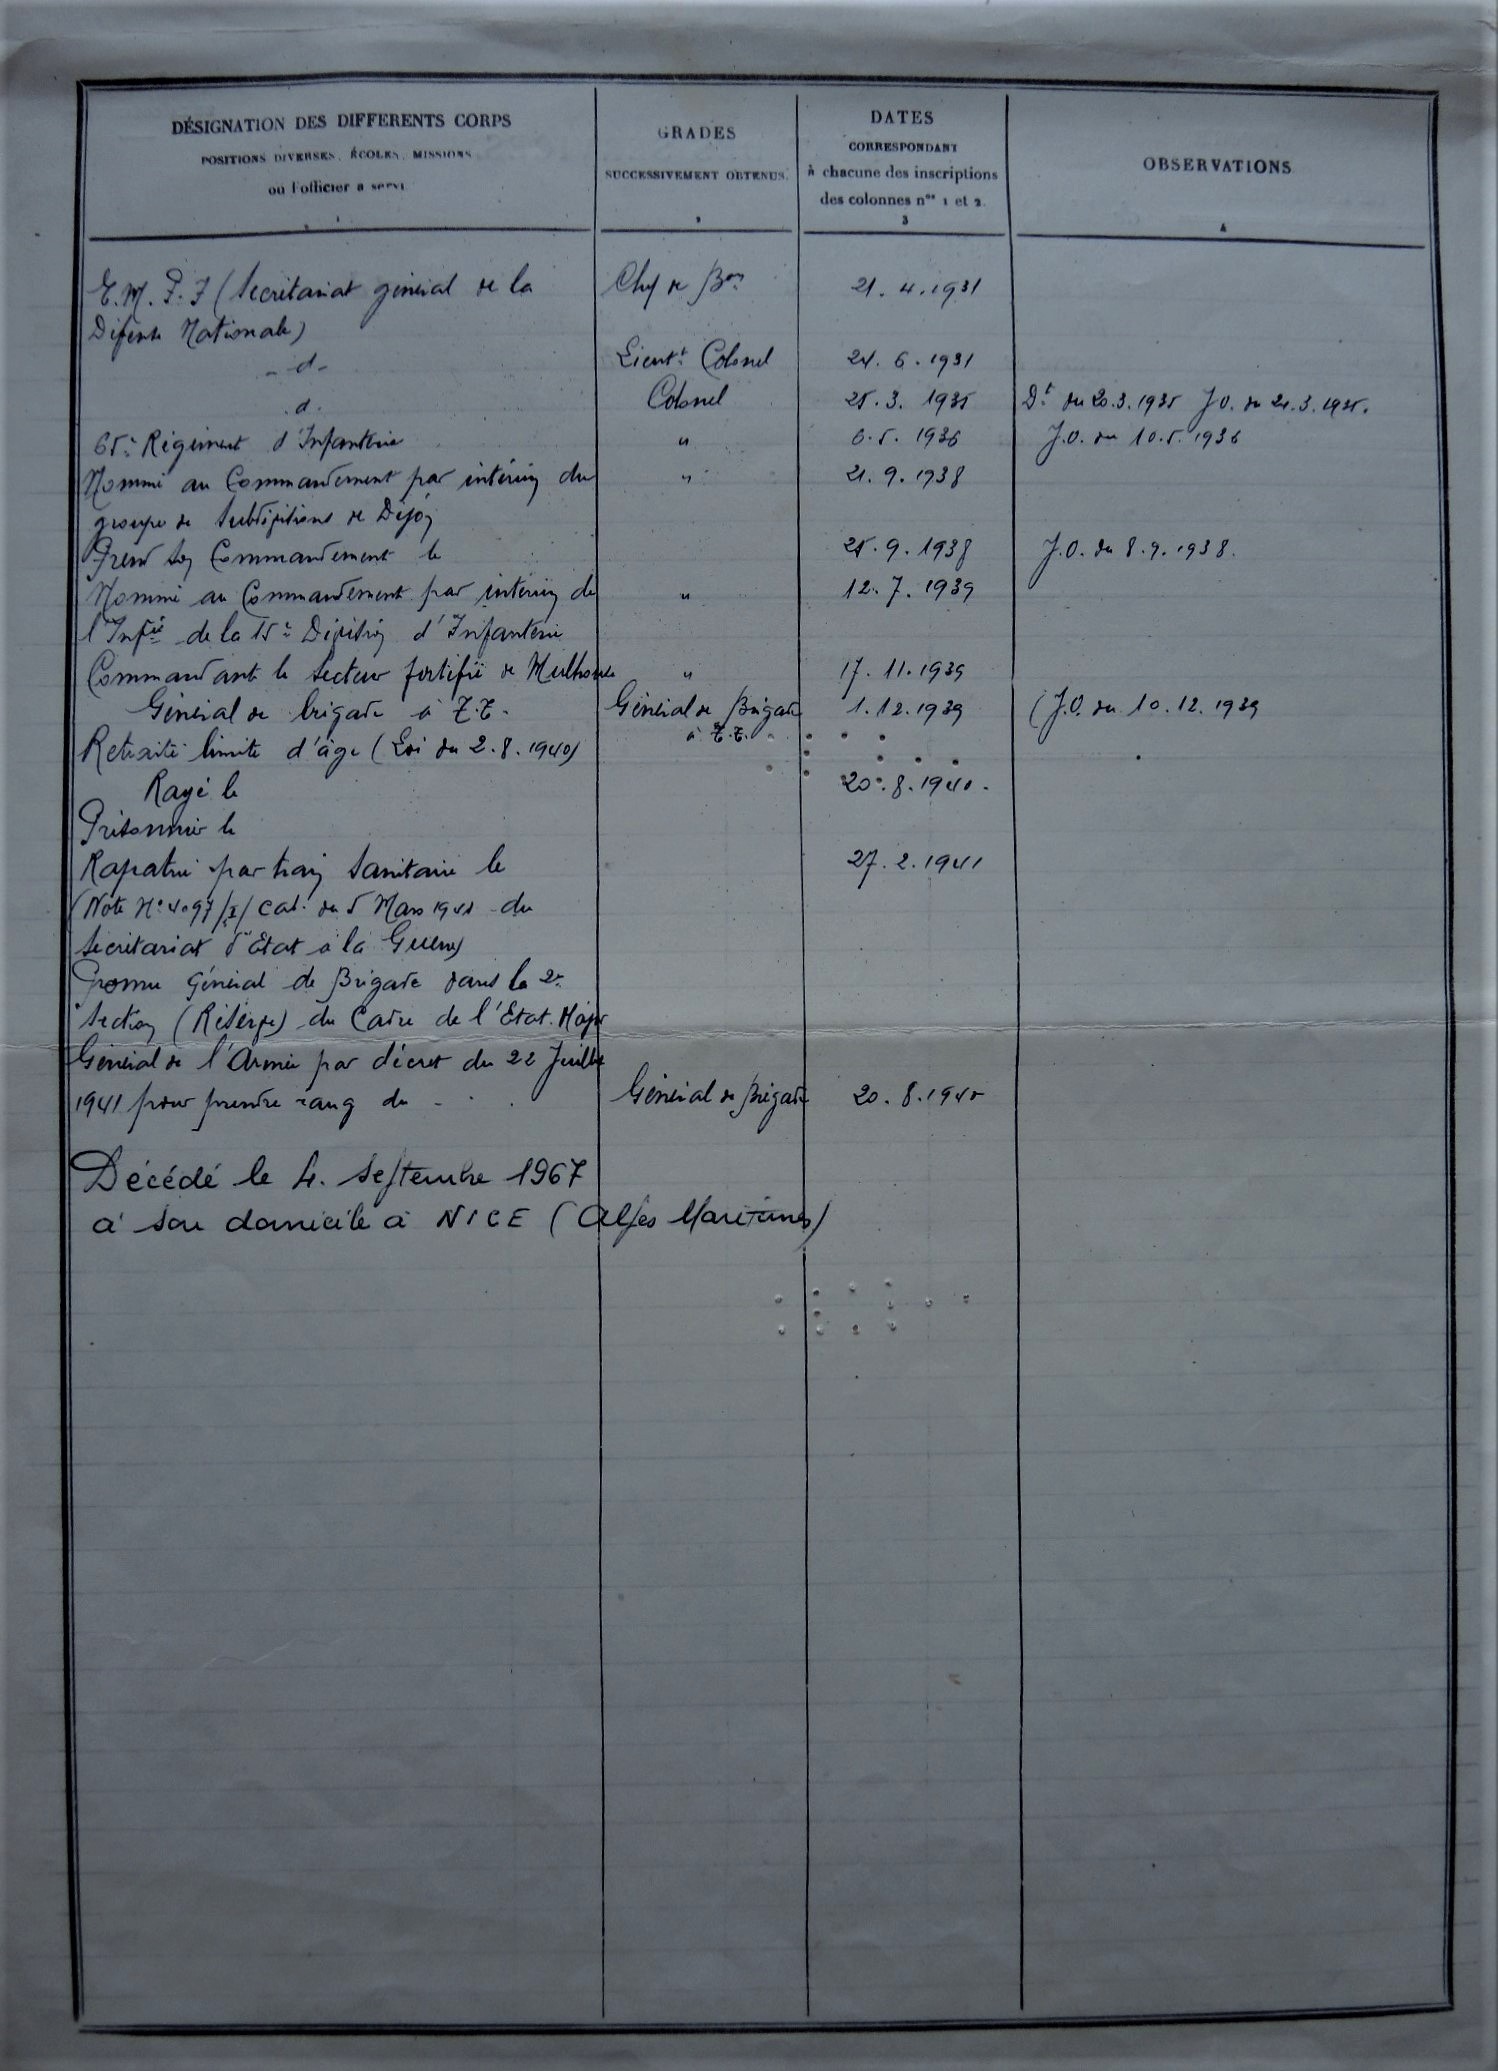 DÉSIGNATION DES DIFFERENTS CORPS
POSITIONS DIVERSES, ÉCOLES, MISSIONS
où l'officier a servi
1
GRADES
SUCCESSIVEMENT OBTENUS.
2
DATES
CORRESPONDANT
à chacune des inscriptions
des colonnes nos 1 et 2.
3
OBSERVATIONS
4
E.M. (Secrétariat général de la Chef de Bon 21.4.1931
Défense Nationale)
- d - Lieutt Colonel 24.6.1931
. d . Colonel 25.3.1935 Dt du 20.3.1935 J.O. du 21.3.1935.
65e Régiment d'Infanterie " 6.5.1936 J.O. du 10.5.1936
Nommé au Commandement par intérim du " 21.9.1938
groupe de Subdivisions de Dijon
Prend son Commandement le 25.9.1938 J.O. du 8.9.1938.
Nommé au Commandement par intérim de " 12.7.1939
l'Infie de la 15e Division d'Infanterie
Commandant le Secteur fortifié de Mulhouse " 17.11.1939
Général de brigade à T.T. Général de Brigade 1.12.1939 (J.O. du 10.12.1939
à T.T.
Retraité limite d'âge (Loi du 2.8.1940)
Rayé le 20.8.1940.
Prisonnier le
Rapatrié par train Sanitaire le 27.2.1941
(Note N° 4097/I/Cab. du 5 Mars 1941 du
Secrétariat d'Etat à la Guerre)
Promu Général de Brigade dans la 2e
Section (Réserve) du Cadre de l'Etat-Major
Général de l'Armée par décret du 22 Juillet
1941 pour prendre rang du - . . Général de Brigade 20.8.1940
Décédé le 4. Septembre 1967
à son domicile à NICE (Alpes Maritimes)